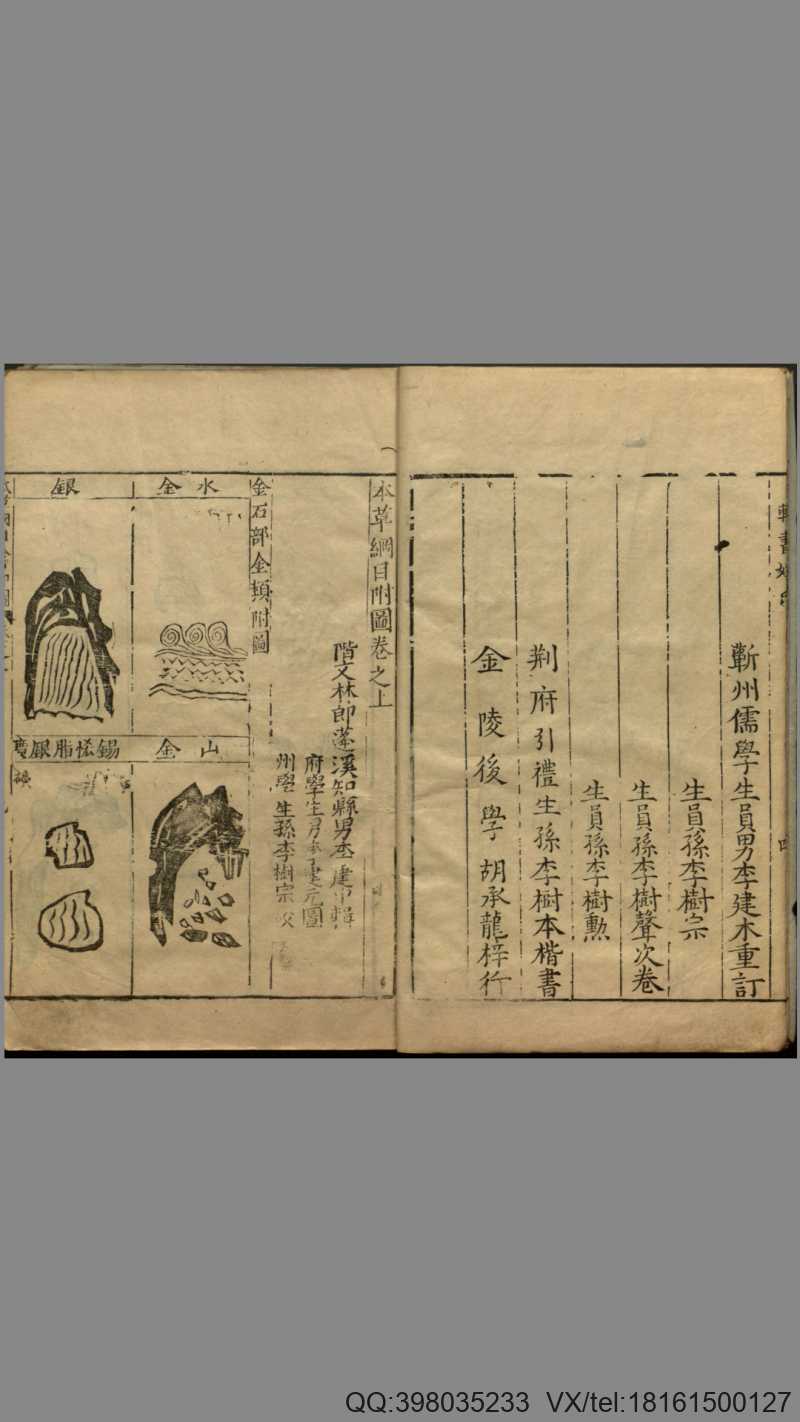 蘄州儒學生員男李建木重訂
生員孫李樹宗
生員孫李樹聲次卷
生員孫李樹勳
荆府引禮生孫李樹本楷書
金陵後學胡承龍梓行
本草綱目附圖卷之上
階文林郎蓬溪知縣男李建中輯
府學生男李建元圖
州學生孫李樹宗校
金石部金類附圖
水金
山金
銀
錫恡脂銀
QQ:398035233 VX/tel:18161500127